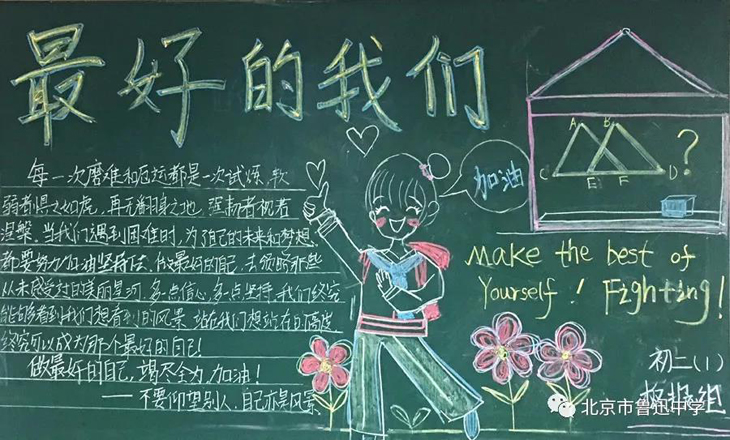 最好的我们
每一次磨难和厄运都是一次试炼,软
弱者惧之如虎,再无翻身之地,强韧者视若
涅槃。当我们遇到困难时,为了自己的未来和梦想,
都要努力加油坚持住。做最好的自己,去领略那些
从未感受过的美丽星河。多点信心,多点坚持,我们终究
能够看到我们想看到的风景,站在我们想站在的高度
终究可以成为那个最好的自己!
做最好的自己,竭尽全力,加油!
——不要仰望别人,自己亦是风景
加油
A B
C E F D
?
make the best of
Yourself! Fighting!
初二(1)
板报组
北京市鲁迅中学